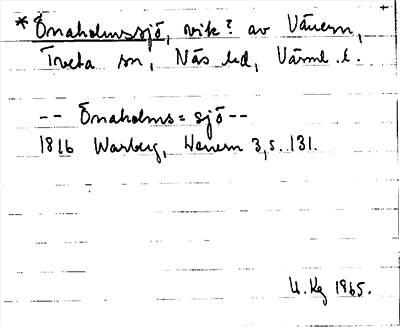 * Önaholmssjö, vik? av Vänern,
Tveta sn, Näs hd, Värml. l.
-- Önaholms=sjö --
1816 Warberg, Wenern 3, s. 131.
1965.